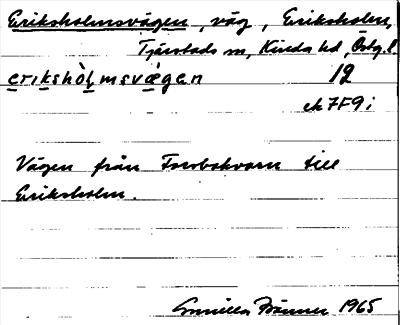 Eriksholmsvägen, väg, Eriksholm,
Tjärstads sn, Kinda hd, Östg.l.
erikshòlmsvägen 12
ek 7F9i
Vägen från Forsbokvarn till
Eriksholm.
Gunilla Bränner 1965